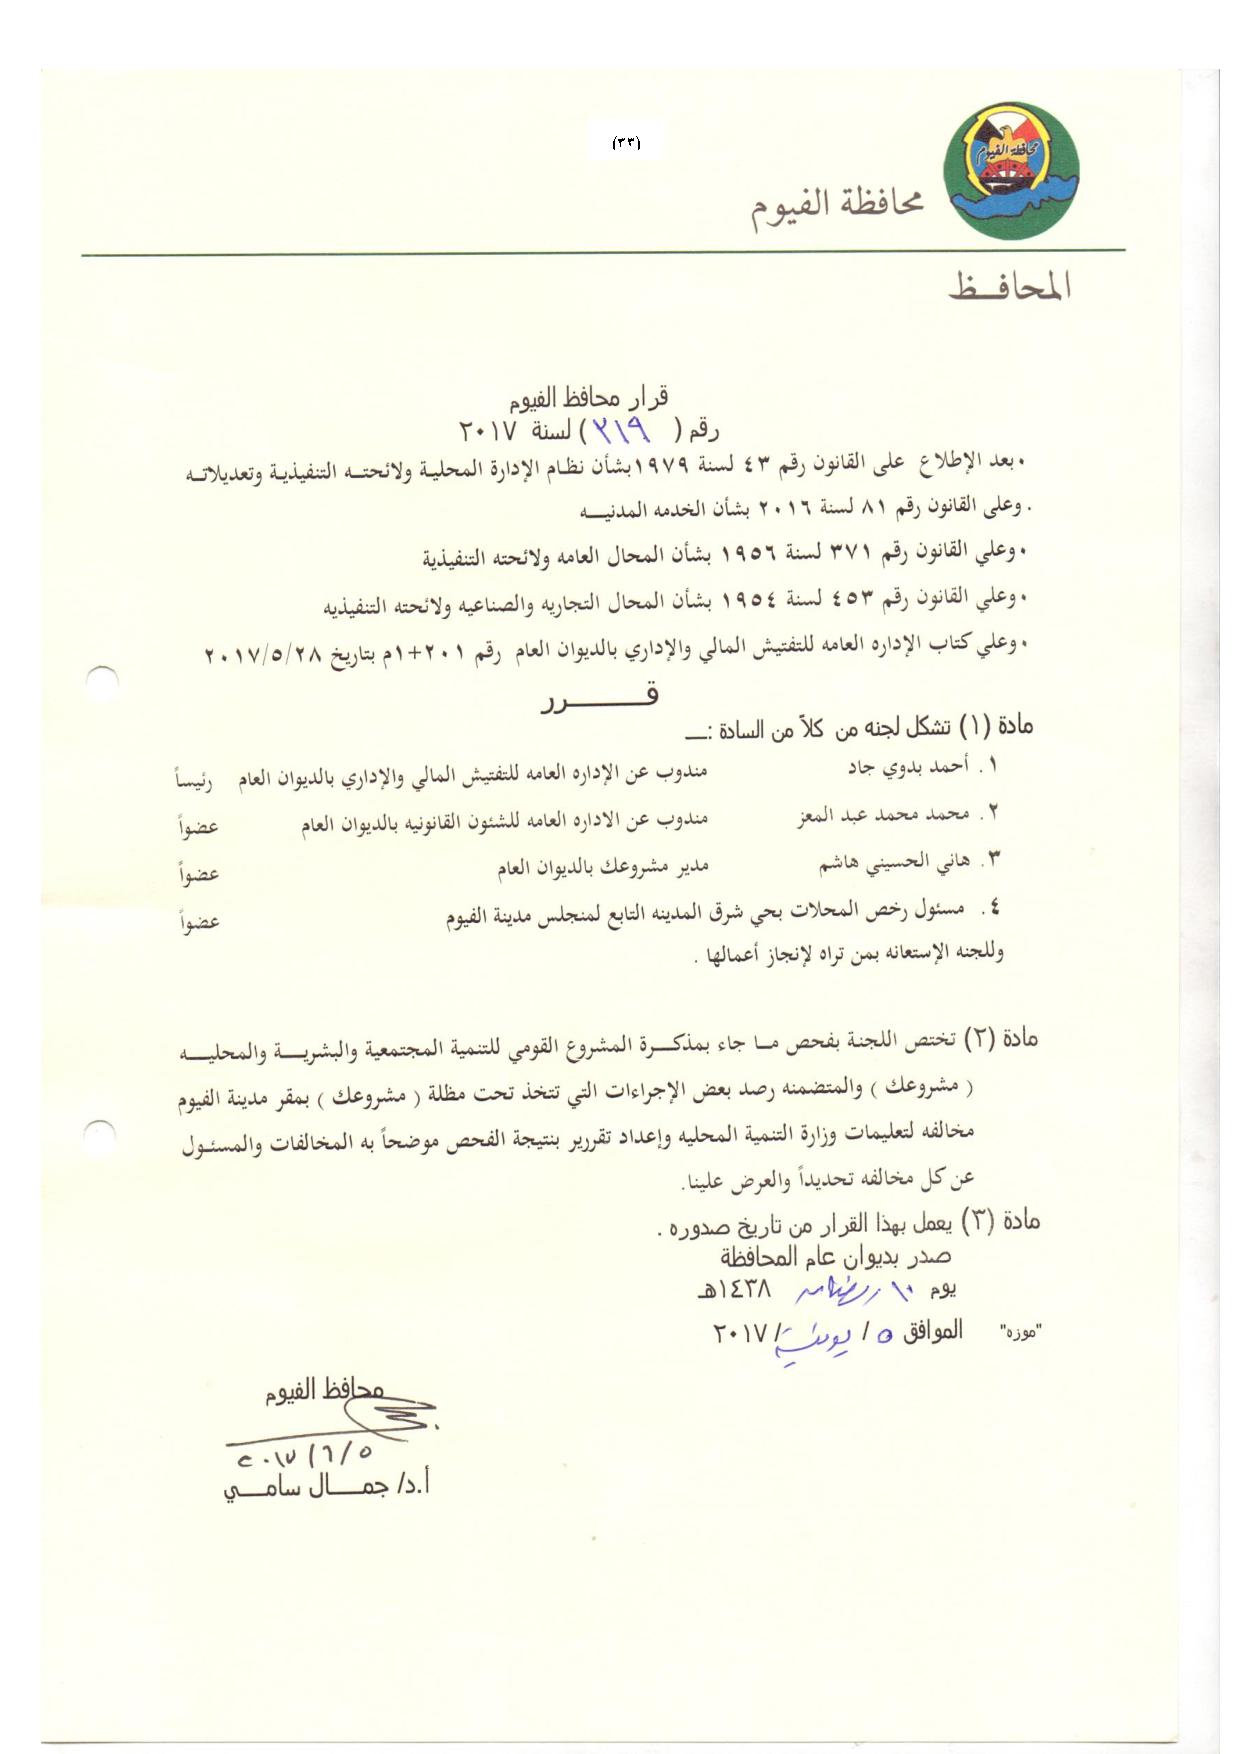 (٣٣)
محافظة الفيوم
محافظة الفيوم
المحافــظ
قرار محافظ الفيوم
رقم ( ٢١٩ ) لسنة ٢٠١٧
• بعد الإطلاع على القانون رقم ٤٣ لسنة ١٩٧٩ بشأن نظام الإدارة المحلية ولائحته التنفيذية وتعديلاته
. وعلى القانون رقم ٨١ لسنة ٢٠١٦ بشأن الخدمه المدنيه
• وعلي القانون رقم ٣٧١ لسنة ١٩٥٦ بشأن المحال العامه ولائحته التنفيذية
• وعلي القانون رقم ٤٥٣ لسنة ١٩٥٤ بشأن المحال التجاريه والصناعيه ولائحته التنفيذيه
• وعلي كتاب الإداره العامه للتفتيش المالي والإداري بالديوان العام رقم ٢٠١+١م بتاريخ ٢٠١٧/٥/٢٨
قــــــرر
مادة (١) تشكل لجنه من كلاً من السادة :ــ
١. أحمد بدوي جاد مندوب عن الإداره العامه للتفتيش المالي والإداري بالديوان العام رئيساً
٢. محمد محمد عبد المعز مندوب عن الاداره العامه للشئون القانونيه بالديوان العام عضواً
٣. هاني الحسيني هاشم مدير مشروعك بالديوان العام عضواً
٤. مسئول رخص المحلات بحي شرق المدينه التابع لمنجلس مدينة الفيوم عضواً
وللجنه الإستعانه بمن تراه لإنجاز أعمالها .
مادة (٢) تختص اللجنة بفحص ما جاء بمذكرة المشروع القومي للتنمية المجتمعية والبشرية والمحليه
( مشروعك ) والمتضمنه رصد بعض الإجراءات التي تتخذ تحت مظلة ( مشروعك ) بمقر مدينة الفيوم
مخالفه لتعليمات وزارة التنمية المحليه وإعداد تقررير بنتيجة الفحص موضحاً به المخالفات والمسئول
عن كل مخالفه تحديداً والعرض علينا.
مادة (٣) يعمل بهذا القرار من تاريخ صدوره .
صدر بديوان عام المحافظة
يوم ١٠ رمضان ١٤٣٨هـ
"موزه" الموافق ٥ / يونية / ٢٠١٧
محافظ الفيوم
٢٠١٧/٦/٥
أ.د/ جمــال سامــي